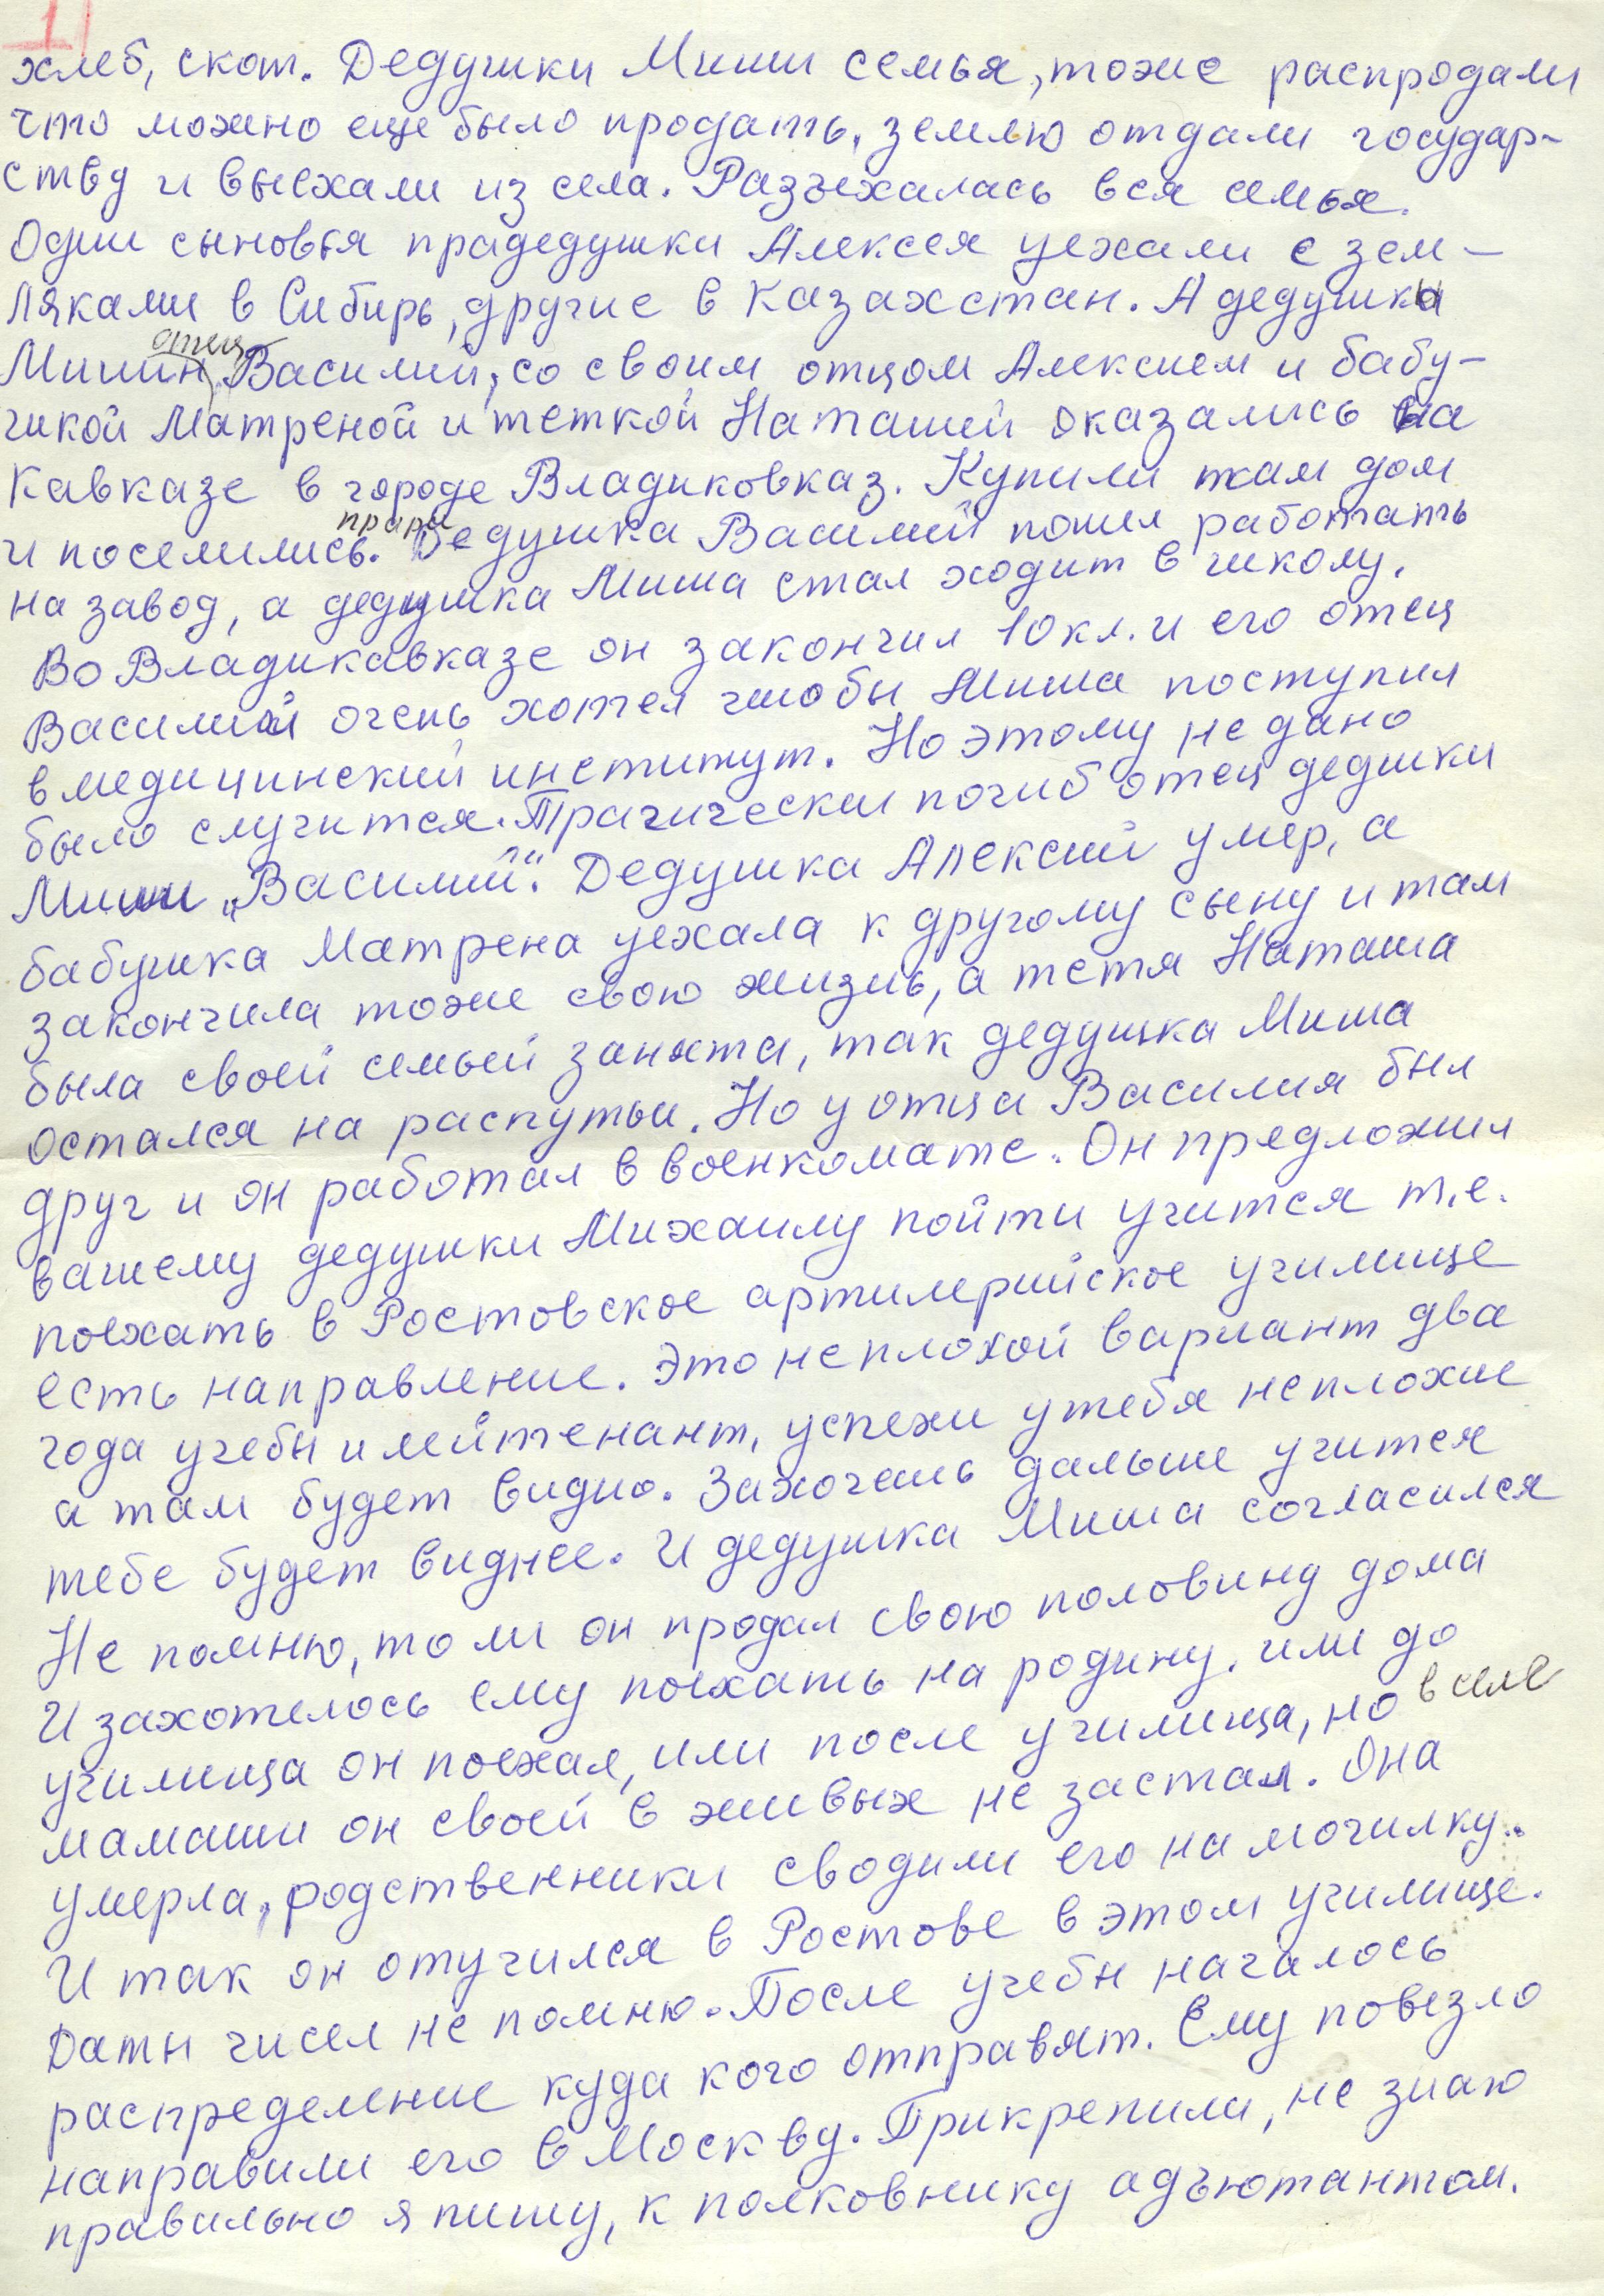 1
хлеб, скот. Дедушки Миши семья, тоже распродали
что можно еще было продать, землю отдали государ-
ству и выехали из села. Разъехалась вся семья.
Одни сыновья прадедушки Алексея уехали с зем-
ляками в Сибирь, другие в Казахстан. А дедушки
отец
Мишин Василий, со своим отцом Алексием и бабу-
шкой Матреной и теткой Наташей оказались на
Кавказе в городе Владиковказ. Купили там дом
прара
и поселились. Дедушка Василий пошел работать
на завод, а дедушка Миша стал ходит в школу.
Во Владикавказе он закончил 10 кл. и его отец
Василий очень хотел чтобы Миша поступил
в медицинский институт. Но этому не дано
было случится. Трагически погиб отец дедушки
Миши „Василий“. Дедушка Алексий умер, а
бабушка Матрена уехала к другому сыну и там
закончила тоже свою жизнь, а тетя Наташа
была своей семьей занята, так дедушка Миша
остался на распутьи. Но у отца Василия был
друг и он работал в военкомате. Он предложил
вашему дедушки Михаилу пойти учится т.е.
поехать в Ростовское артилерийское училище
есть направление. Это неплохой вариант два
года учебы и лейтенант, успехи у тебя неплохие
а там будет видно. Захочешь дальше учится
тебе будет виднее. И дедушка Миша согласился
Не помню, то ли он продал свою половину дома
И захотелось ему поехать на родину. или до
училища он поехал, или после училища, но в селе
мамаши он своей в живых не застал. Она
умерла, родственники сводили его на могилку.
И так он отучился в Ростове в этом училище.
Даты чисел не помню. После учебы началось
распределение куда кого отправят. Ему повезло
направили его в Москву. Прикрепили, не знаю
правильно я пишу, к полковнику адъютантом.